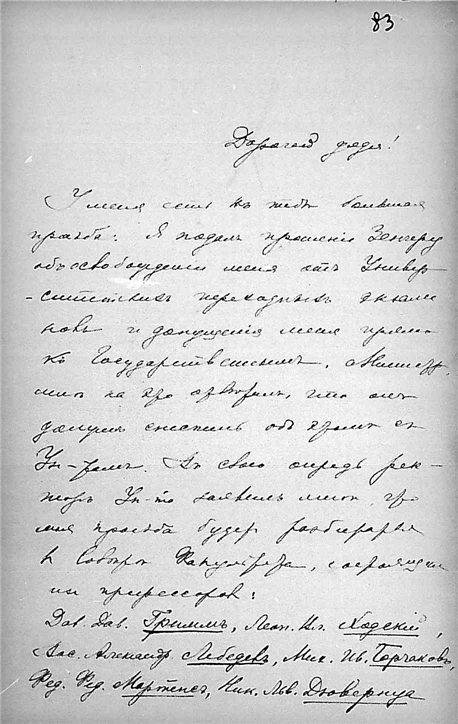 83
Дорогой дядя!
У меня есть къ тебѣ большая
просьба: Я подалъ прошеніе Зенгеру
объ освобожденіи меня отъ Универ
-ситетскихъ переходныхъ экзаме
новъ и допущенія меня прямо
къ Государственнымъ. Министръ
мнѣ на это отвѣтилъ, что онъ
долженъ снестись объ этомъ съ
Ун-томъ. Въ свою очередь рек-
торъ Ун-та заявилъ мнѣ, что
моя просьба будетъ разбираться
въ Совѣтѣ Факультета, состоящемъ
изъ профессоровъ:
Дав. Дав. Гриммъ, Леон. Вл. Ходскій,
Вас. Александр. Лебедевъ, Мих. Ив. Горчаковъ,
Фед. Фед. Мартенсъ, Ник. Льв. Дювернуа